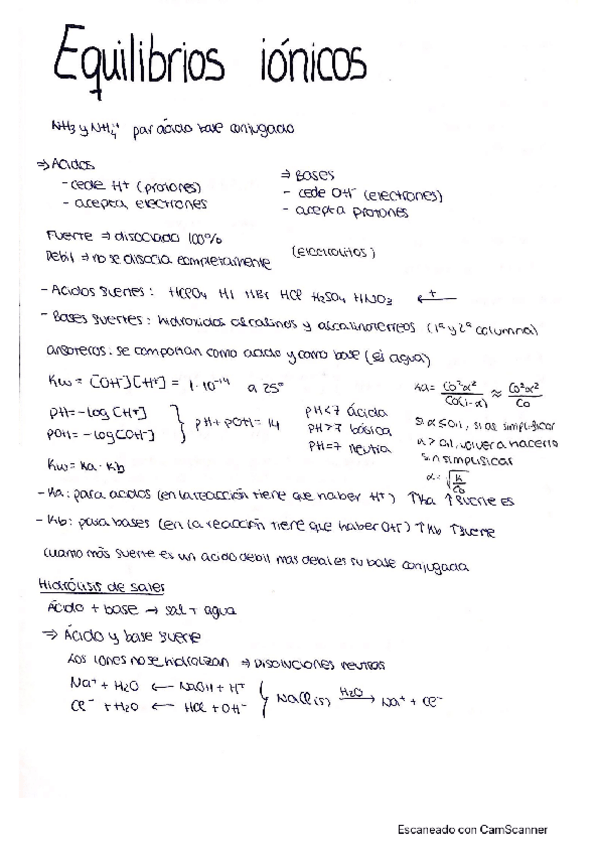 Equilibrios iónicos
NH3 y NH4+ par ácido base conjugado
⇒ Ácidos
- cede H+ (protones)
- acepta electrones
⇒ Bases
- cede OH- (electrones)
- acepta protones
Fuerte ⇒ disociado 100%
Débil ⇒ no se disocia completamente
(electrolitos)
- Ácidos fuertes: HClO4 HI HBr HCl H2SO4 HNO3 ←+
- Bases fuertes: hidróxidos alcalinos y alcalinotérreos (1ª y 2ª columna)
anfóteros: se comportan como ácido y como base (ej agua)
Kw = [OH-][H+] = 1·10^-14 a 25º
pH = -log[H+]
pOH = -log[OH-]
} pH + pOH = 14
pH<7 ácida
pH>7 básica
pH=7 neutra
Ka = Co²α²/Co(1-α) ≈ Co²α²/Co
si α ≤ 0,1, si as simplificar
α > 0,1, volver a hacerlo
sin simplificar
α = √(K/Co)
Kw = Ka · Kb
- Ka: para ácidos (en la reacción tiene que haber H+) ↑Ka ↑fuerte es
- Kb: para bases (en la reacción tiene que haber OH-) ↑Kb ↑fuerte
cuanto más fuerte es un ácido débil más débil es su base conjugada
Hidrólisis de sales
Ácido + base → sal + agua
⇒ Ácido y base fuerte
Los iones no se hidrolizan ⇒ Disoluciones neutras
Na+ + H2O ← NaOH + H+
Cl- + H2O ← HCl + OH-
NaCl(s) H2O→ Na+ + Cl-
Escaneado con CamScanner